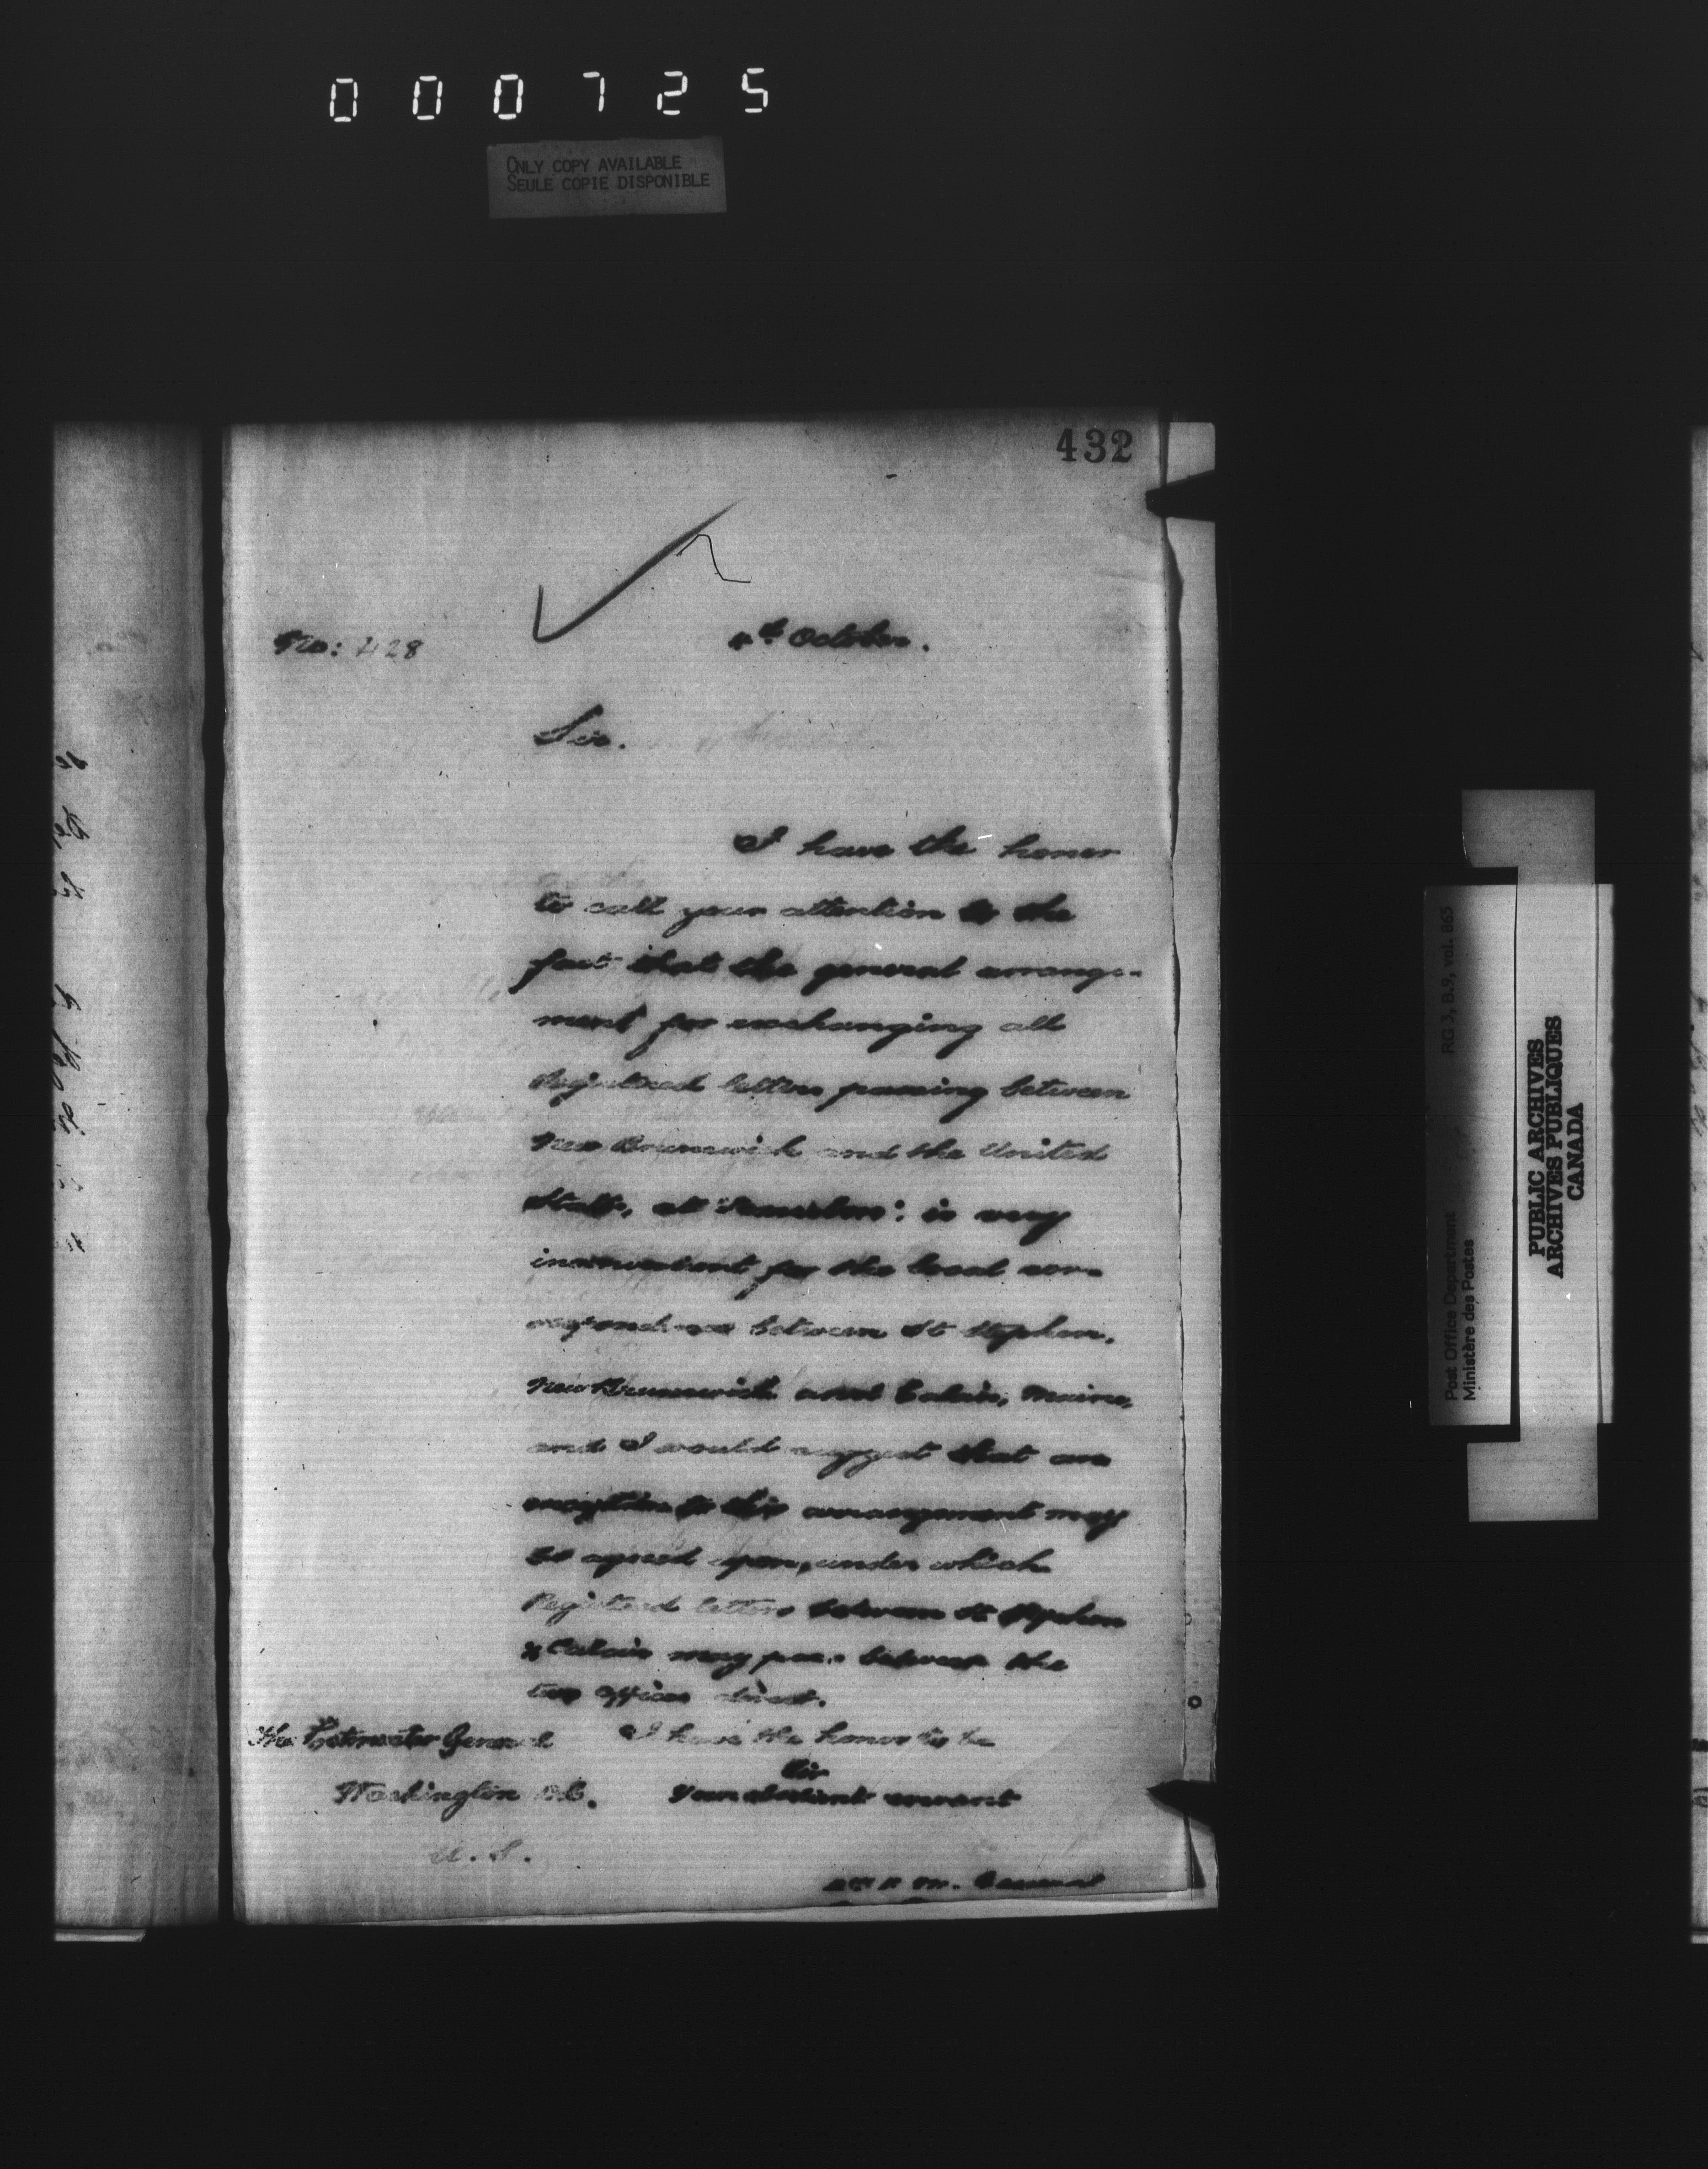 000725
ONLY COPY AVAILABLE
SEULE COPIE DISPONIBLE
432
No: 428
4th October.
Sir.
I have the honor
to call your attention to the
fact that the general arrange-
ment for exchanging all
Registered letters passing between
New Brunswick and the United
States, at is very
inconvenient for the local cor-
respondence between St Stephen,
New Brunswick and Calais, Maine,
and I would suggest that an
exception to this arrangement may
be agreed upon, under which
Registered letters between St Stephen
& Calais may pass between the
two offices direct.
The Postmaster General
Washington D.C.
U.S.
I have the honor to be
Sir
Your obedient servant
RG 3, B.9, vol. 865
Post Office Department
Ministère des Postes
PUBLIC ARCHIVES
ARCHIVES PUBLIQUES
CANADA